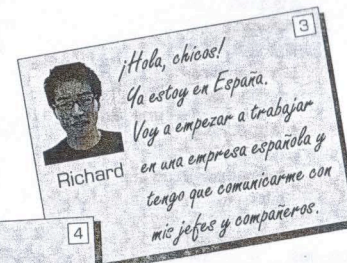 3
¡Hola, chicos!
Ya estoy en España.
Voy a empezar a trabajar
en una empresa española y
tengo que comunicarme con
mis jefes y compañeros.
Richard
4